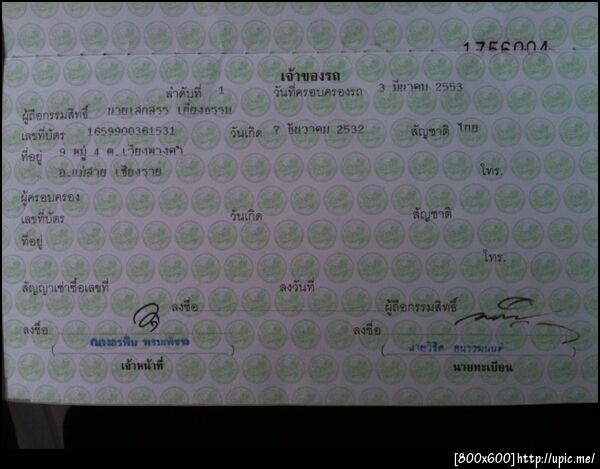 เจ้าของรถ
ลำดับที่ 1 วันที่ครอบครองรถ 3 มีนาคม 2553
ผู้ถือกรรมสิทธิ์ นายเสกสรร เที่ยงธรรม
เลขที่บัตร 1659900361531 วันเกิด 7 ธันวาคม 2532 สัญชาติ ไทย
ที่อยู่ 9 หมู่ 4 ต.เวียงพางคำ
อ.แม่สาย เชียงราย โทร.
ผู้ครอบครอง
เลขที่บัตร วันเกิด สัญชาติ
ที่อยู่
โทร.
สัญญาเช่าซื้อเลขที่ ลงวันที่
ลงชื่อ ผู้ถือกรรมสิทธิ์
ลงชื่อ ลงชื่อ
เจ้าหน้าที่ นายทะเบียน
[800x600]http://upic.me/